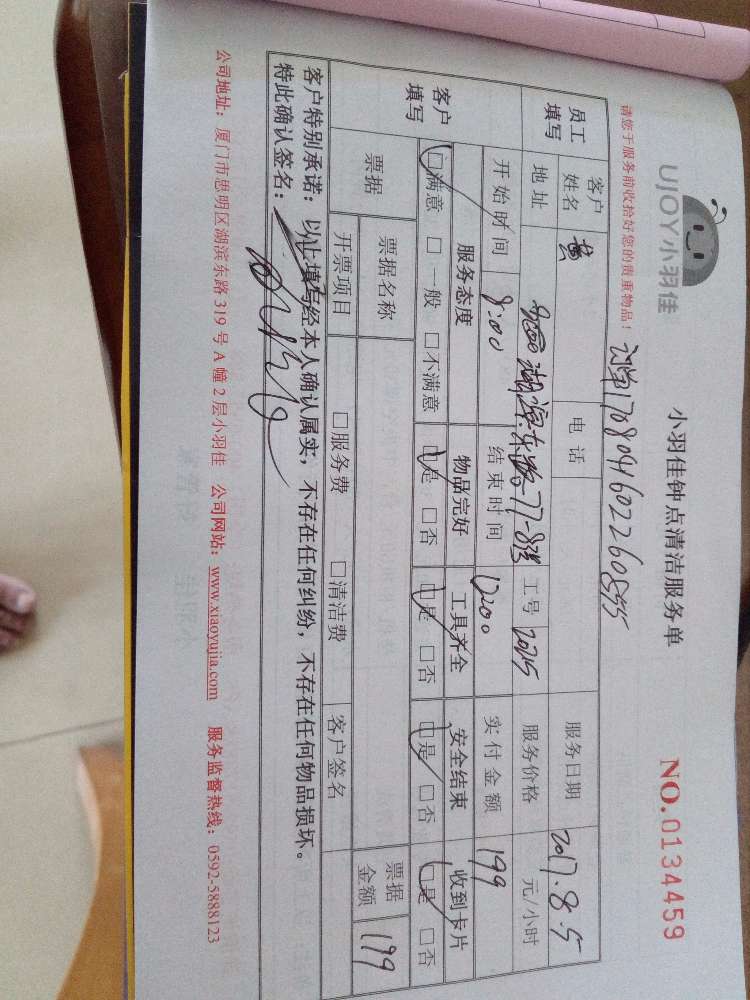 UJOY小羽佳
小羽佳钟点清洁服务单
NO.0134459
请您于服务前收拾好您的贵重物品！
170804160226085
员工填写
客户姓名 黄
电话
服务日期 2017.8.5
地址 湖滨东路77-8
工号 2025
服务价格 元/小时
开始时间 8:00
结束时间 12:00
实付金额 199
客户填写
服务态度 物品完好 工具齐全 安全结束 收到卡片
□满意 □一般 □不满意 □是 □否 □是 □否 □是 □否 □是 □否
票据
票据名称
票据金额 199
开票项目 □服务费 □清洁费 客户签名
客户特别承诺：以上填写经本人确认属实，不存在任何纠纷，不存在任何物品损坏。
特此确认签名：
公司地址：厦门市思明区湖滨东路 319 号 A 幢 2 层小羽佳 公司网站：www.xiaoyujia.com 服务监督热线：0592-5888123